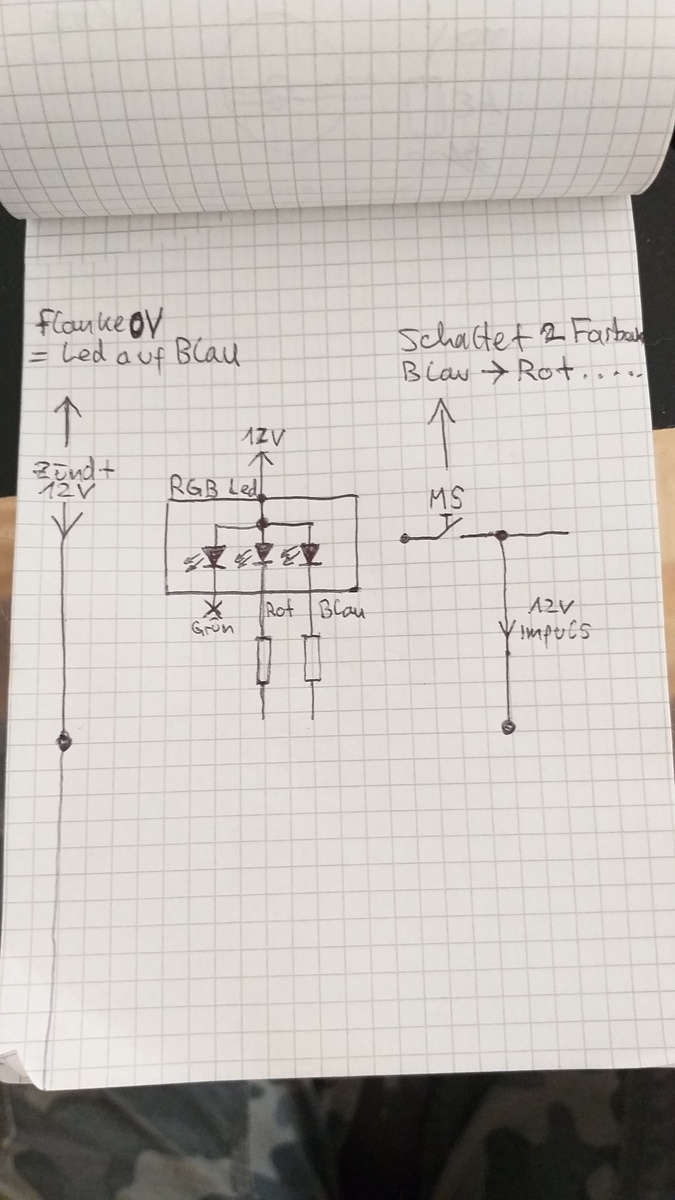 Flanke 0V
= Led auf Blau
Schaltet 2 Farben
Blau → Rot.....
Zünd+
12V
12V
RGB Led
MS
Grün
Rot
Blau
12V
Impuls